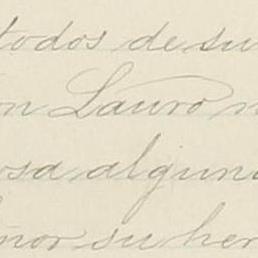 todos de su
n Lauro n
sa algun
nor su her